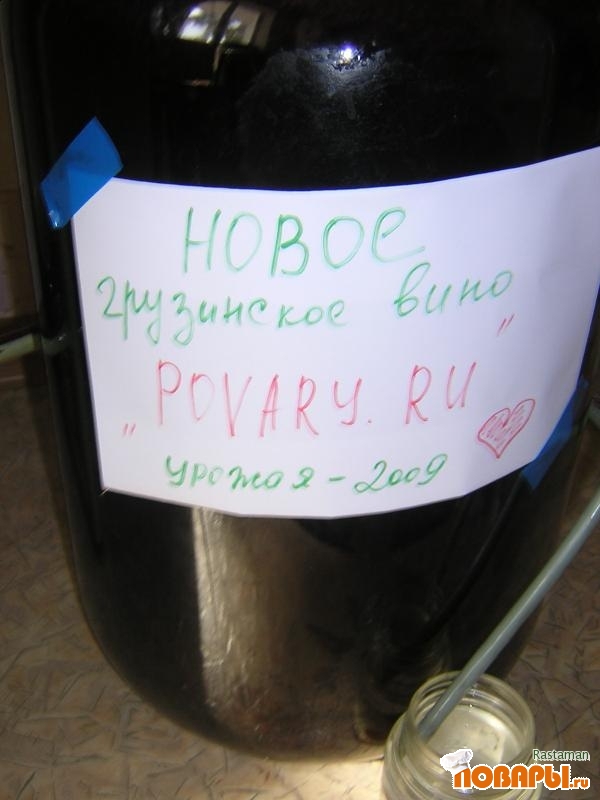 НОВОЕ
грузинское вино
„POVARY. RU"
урожая - 2009
Rastaman
ПОВАРЫ.ru